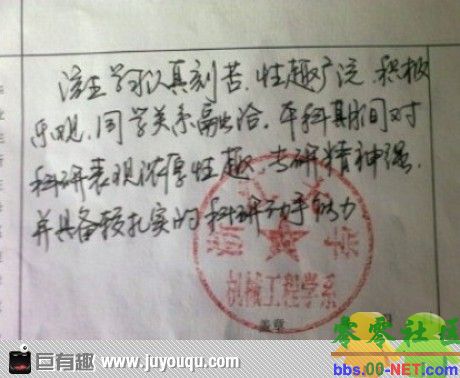 该生学习认真刻苦，性趣广泛 积极
乐观，同学关系融洽，本科其间对
科研表现浓厚性趣，专研精神强，
并具备较扎实的科研动手能力
机械工程学系
盖章
零零社区
亘有趣 www.juyouqu.com
bbs.00-NET.com